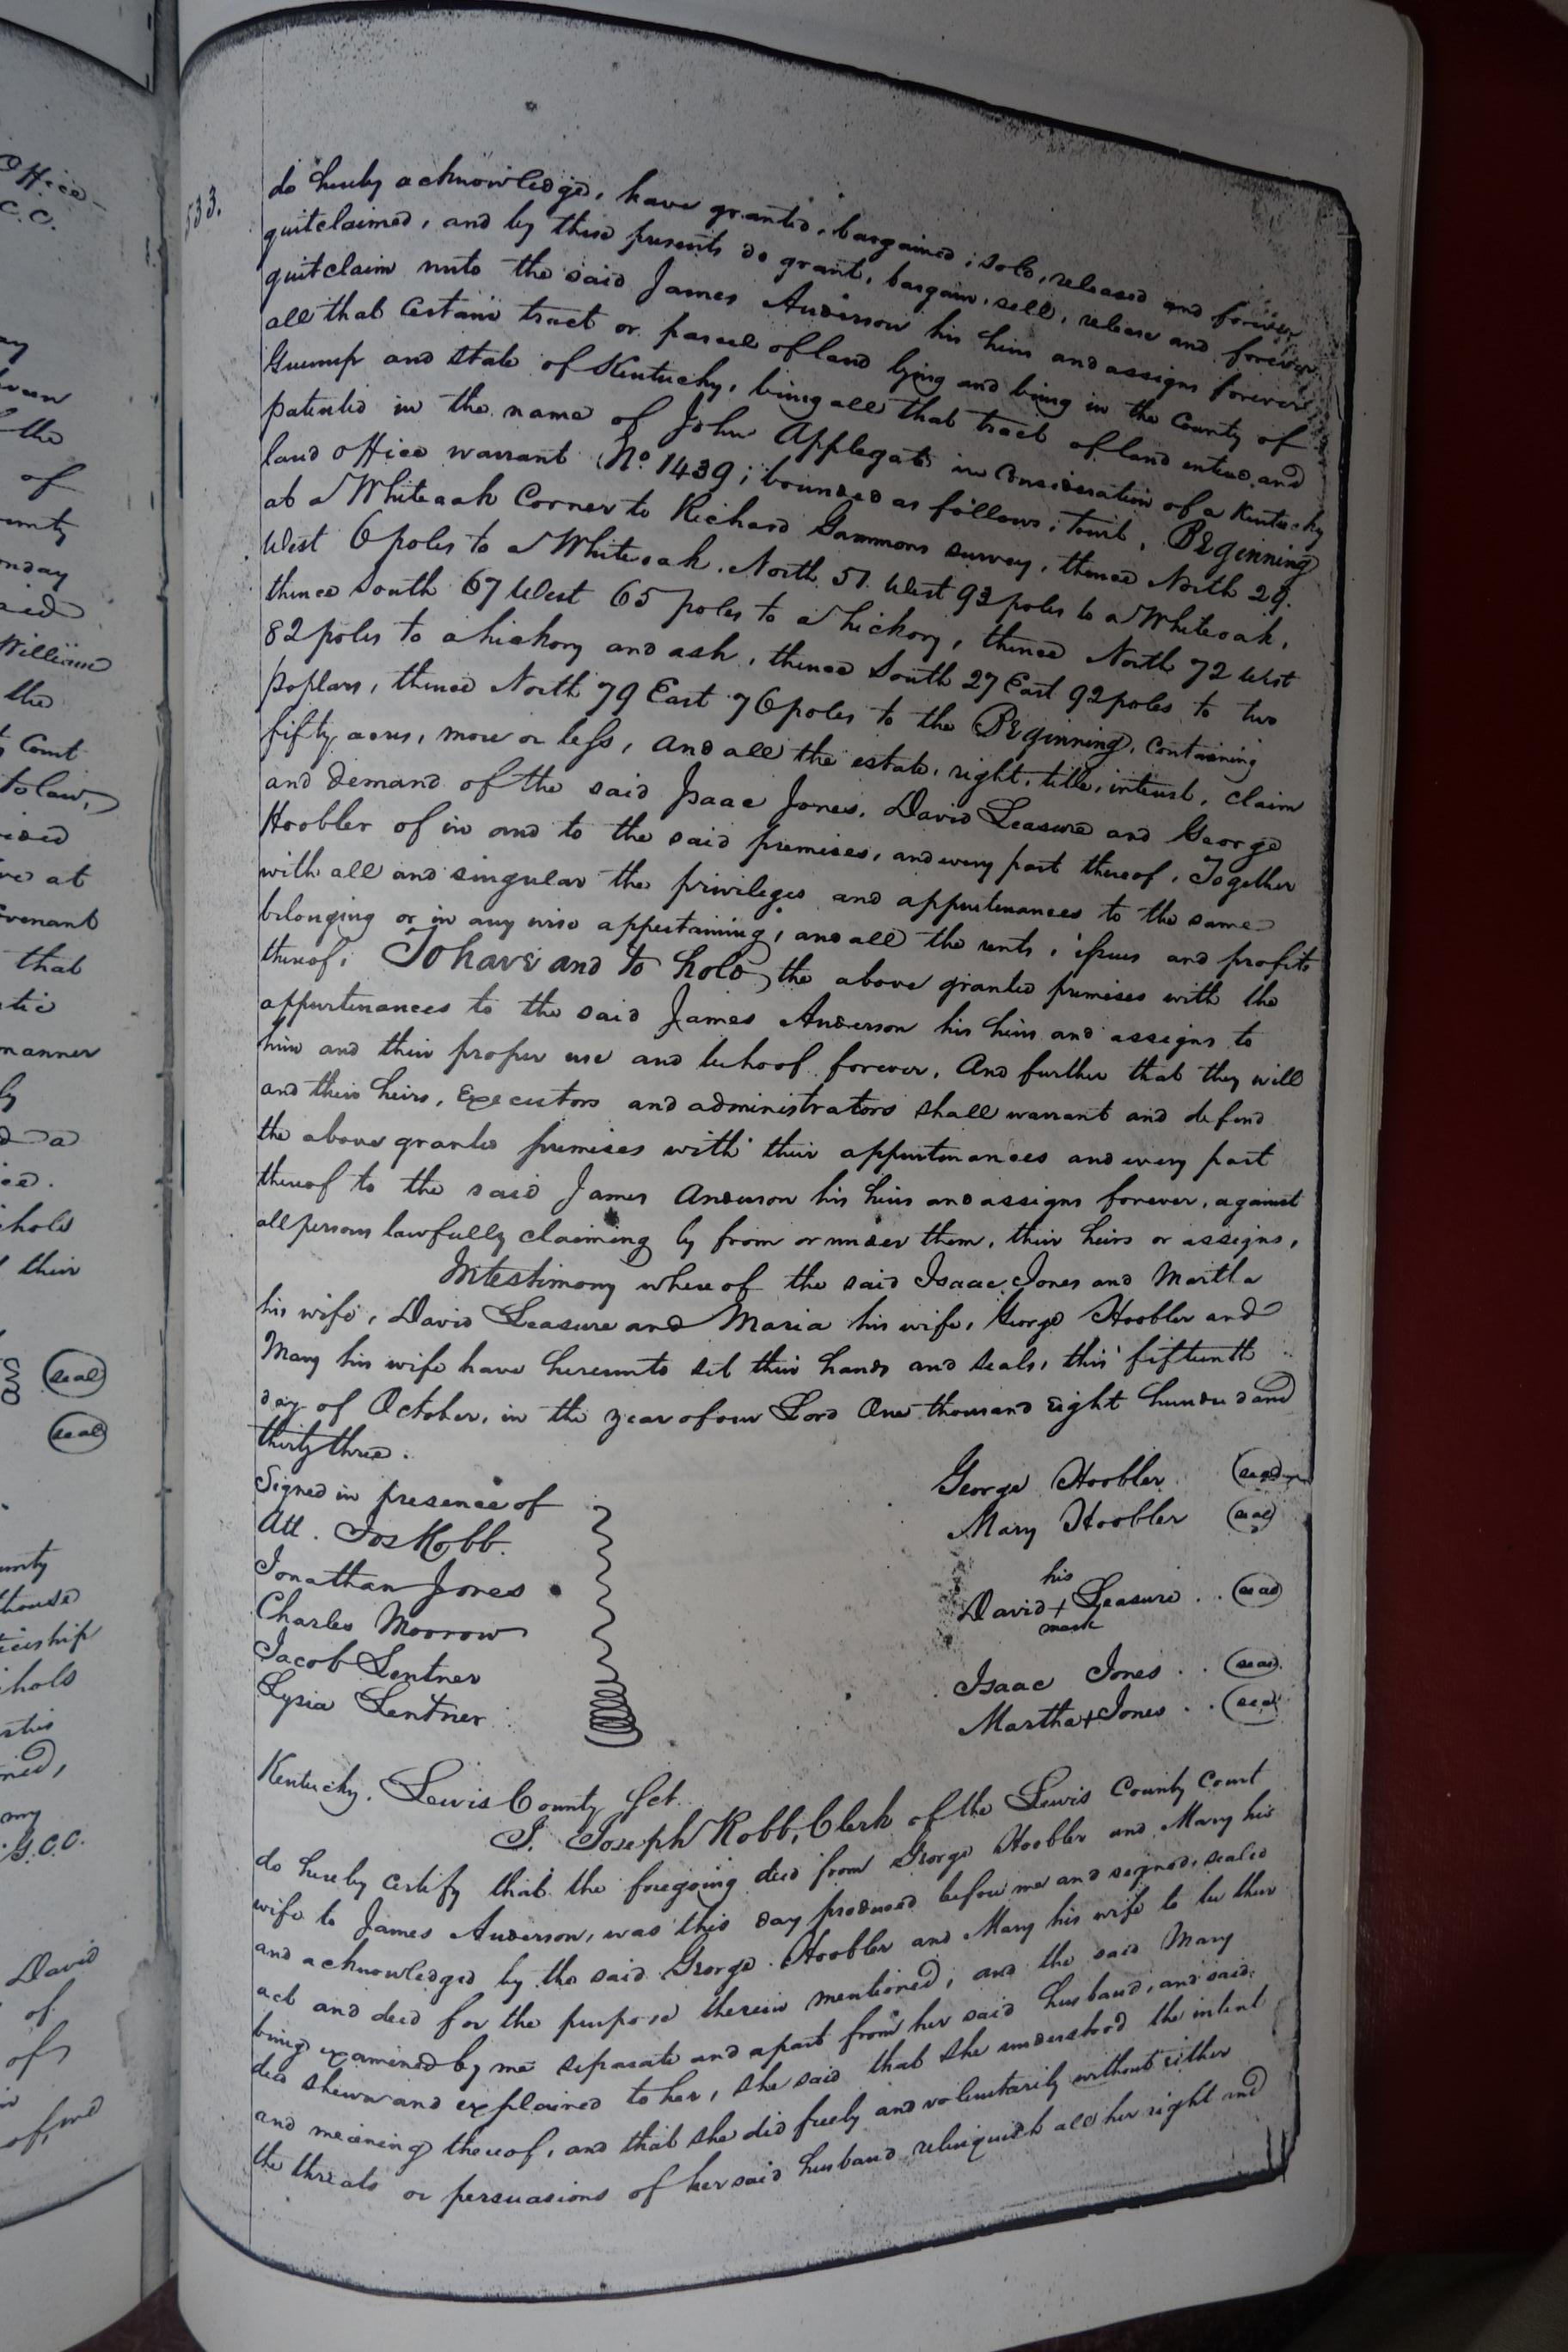 Office
C.C.
the
of
William
the
Court
to law,
at
that
manner
a
their
seal
seal
my
David
of
of
533.
do hereby acknowledge, have granted, bargained, sold, released and forever
quitclaimed, and by these presents do grant, bargain, sell, release and forever
quitclaim unto the said James Anderson his heirs and assigns forever
all that certain tract or parcel of land lying and being in the County of
Greenup and state of Kentucky, being all that tract of land entered and
patented in the name of John Applegate in consideration of a Kentucky
land office warrant No 1439; bounded as follows; towit, Beginning
at a Whiteoak Corner to Richard Gammons survey, thence North 29.
West 6 poles to a Whiteoak, North 51 West 93 poles to a Whiteoak,
thence South 67 West 65 poles to a hickory, thence North 72 West
82 poles to a hickory and ash, thence South 27 East 92 poles to two
poplars, thence North 79 East 76 poles to the Beginning, containing
fifty acres, more or less, and all the estate, right, title, interest, claim
and demand of the said Isaac Jones, David Leasure and George
Hoobler of in and to the said premises, and every part thereof, Together
with all and singular the privileges and appurtenances to the same
belonging or in any wise appertaining, and all the rents, issues and profits
thereof; To have and to hold the above granted premises with the
appurtenances to the said James Anderson his heirs and assigns to
him and their proper use and behoof forever, And further that they will
and their heirs, Executors and administrators shall warrant and defend
the above granted premises with their appurtenances and every part
thereof to the said James Anderson his heirs and assigns forever, against
all persons lawfully claiming by from or under them, their heirs or assigns,
In testimony where of the said Isaac Jones and Martha
his wife, David Leasure and Maria his wife, George Hoobler and
Mary his wife have hereunto set their hands and seals, this fifteenth
day of October, in the year of our Lord One thousand Eight hundred and
thirty three.
Signed in presence of
Att. Jos Robb.
Jonathan Jones
Charles Morrow
Jacob Lentner
Lysia Lentner
George Hoobler (seal)
Mary Hoobler (seal)
his
David + Leasure . . (seal)
mark
Isaac Jones . . (seal)
Martha + Jones . . (seal)
Kentucky. Lewis County Sct.
I. Joseph Robb, Clerk of the Lewis County Court
do hereby certify that the foregoing deed from George Hoobler and Mary his
wife to James Anderson, was this day produced before me and signed, sealed
and acknowledged by the said George Hoobler and Mary his wife to be their
act and deed for the purpose therein mentioned; and the said Mary
being examined by me separate and apart from her said husband, and said
deed shewn and explained to her, she said that she understood the intent
and meaning thereof, and that she did freely and voluntarily without either
the threats or persuasions of her said husband relinquish all her right and